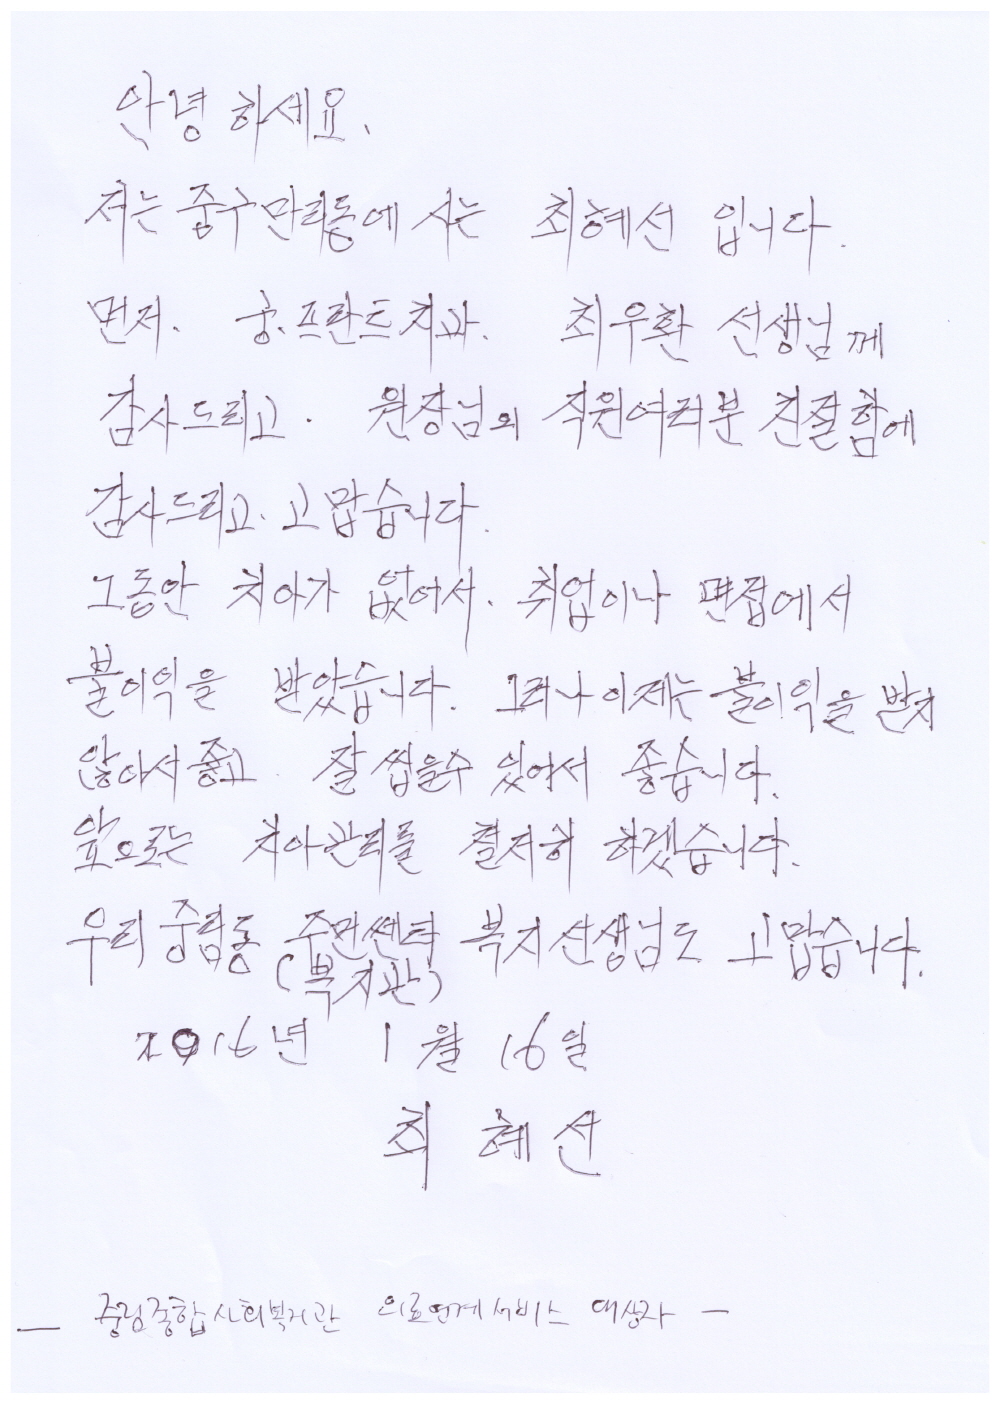 안녕 하세요.
저는 중구만리동에 사는 최혜선 입니다.
먼저. 굿.프란트치과. 최우환 선생님께
감사드리고. 원장님외 직원여러분 친절함에
감사드리고. 고맙습니다.
그동안 치아가 없어서. 취업이나 면접에서
불이익을 받았습니다. 그러나 이제는 불이익을 받지
않아서 좋고 잘 씹을수 있어서 좋습니다.
앞으로는 치아관리를 철저히 하겠습니다.
우리 중림동 주민쎈타 복지선생님도 고맙습니다.
(복지관)
2016년 1월 16일
최 혜 선
— 중림종합사회복지관 의료연계서비스 대상자 —